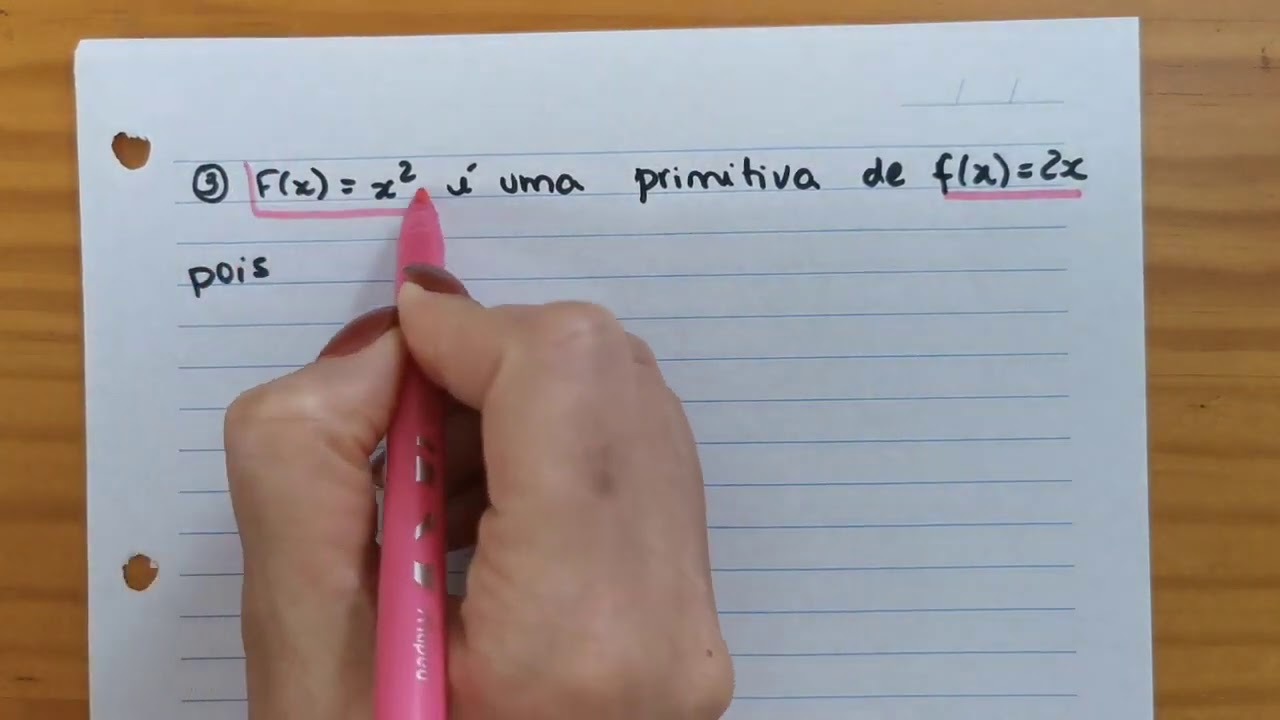 ③ F(x) = x² é uma primitiva de f(x) = 2x
pois